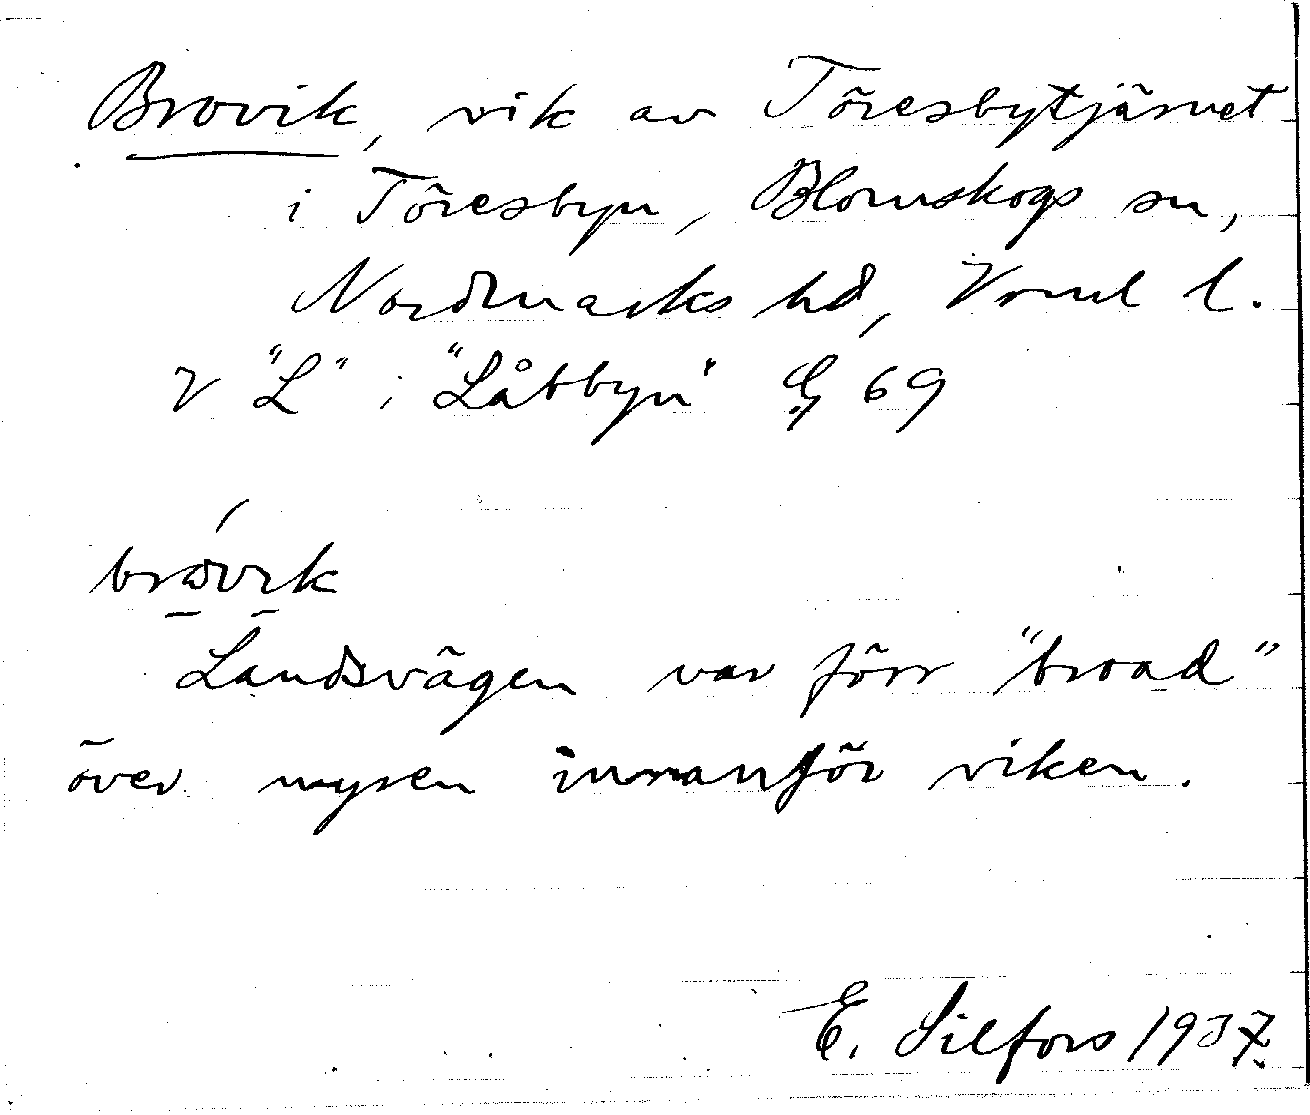 Brovik, vik av Töresbytjärnet
i Töresbyn, Blomskogs sn,
Nordmarks hd, Vrml l.
V "L" i "Låbbyn" G 69
brovik
Landsvägen var förr "broad"
över myren innanför viken.
E. Silfors 1937.